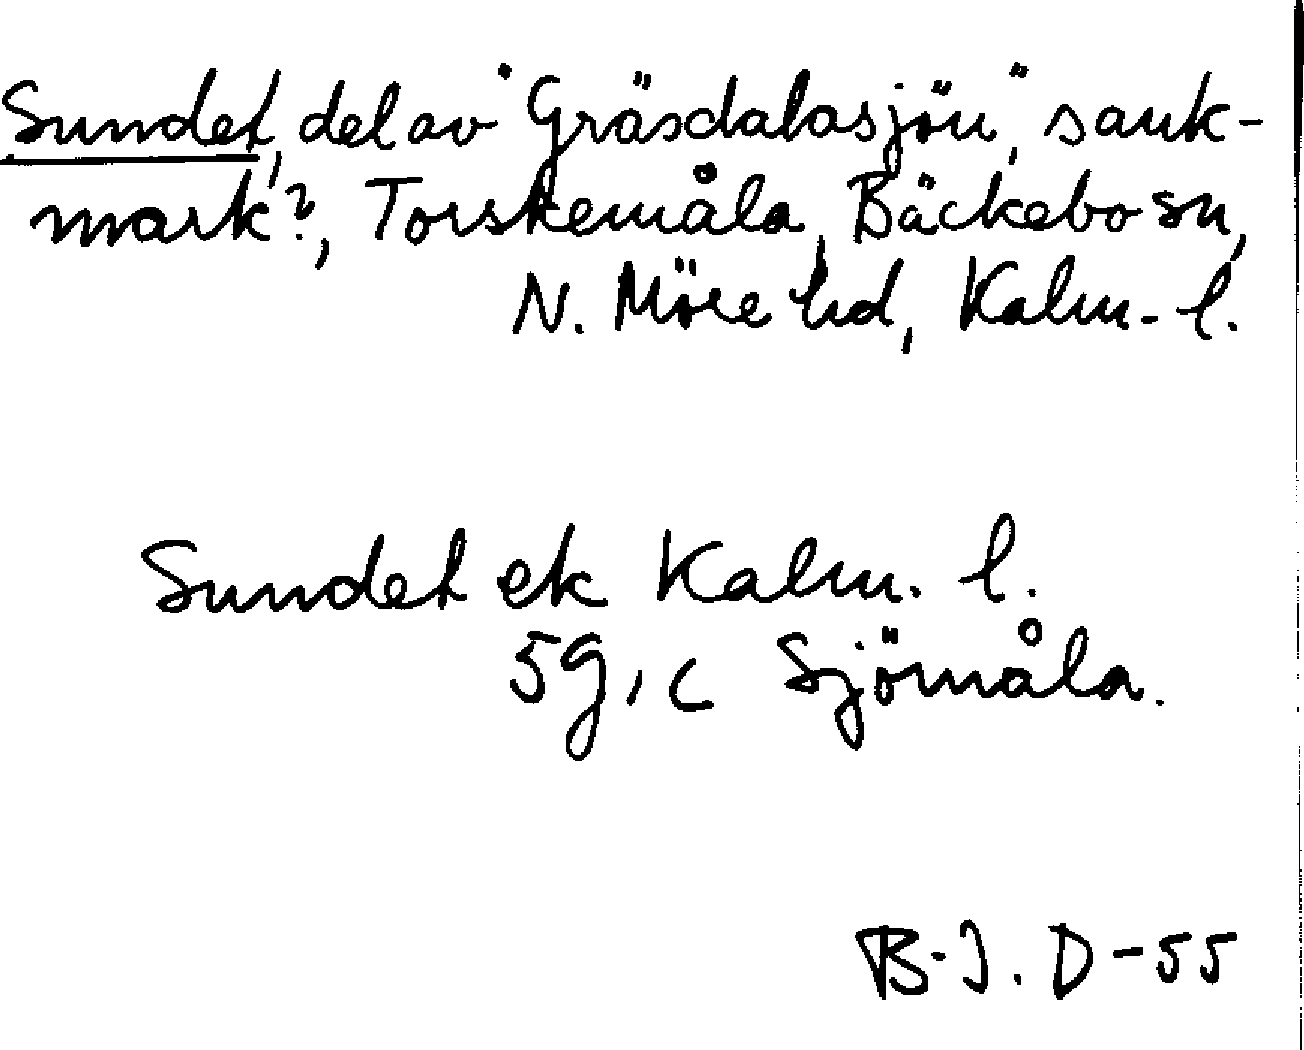 Sundet, del av "Gräsdalasjön", sank-
mark?, Torskemåla, Bäckebo sn,
N. Möre hd, Kalm. l.
Sundet ek Kalm. l.
5g, c Sjömåla.
B-J. D-55